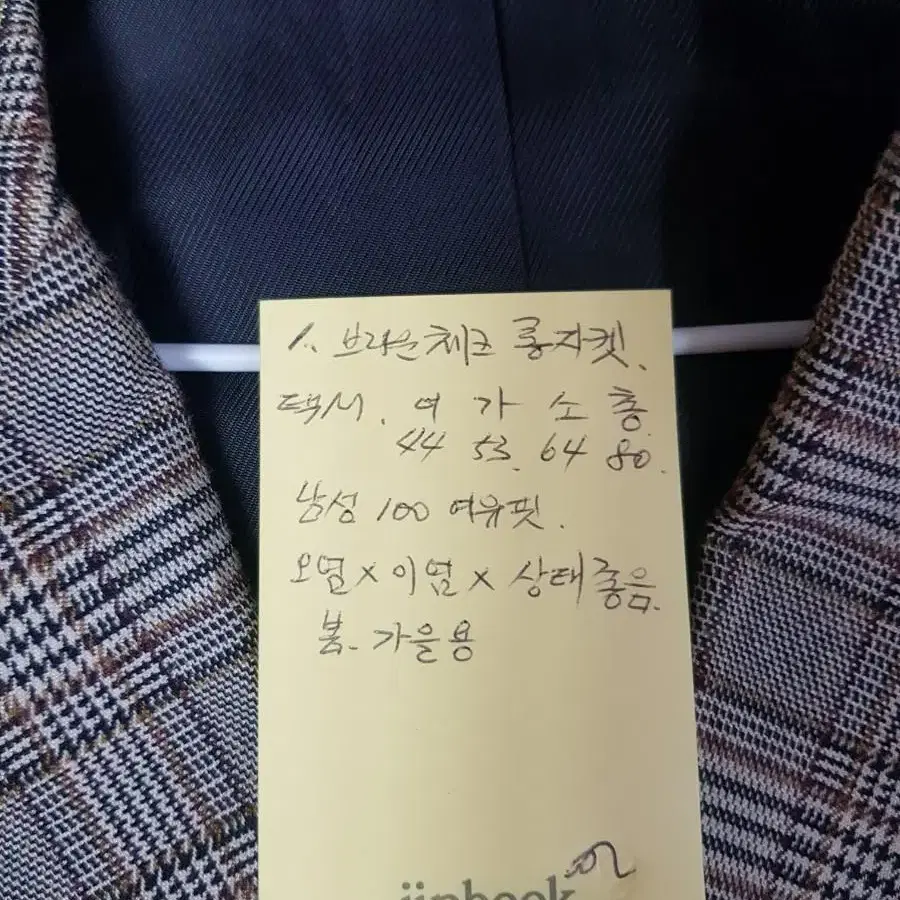 1. 브라운체크 롱자켓.
택시. 어 가 소 총
44 53. 64 80.
남성 100 여유핏.
오염 x 이염 x 상태좋음.
봄. 가을용
jinbook